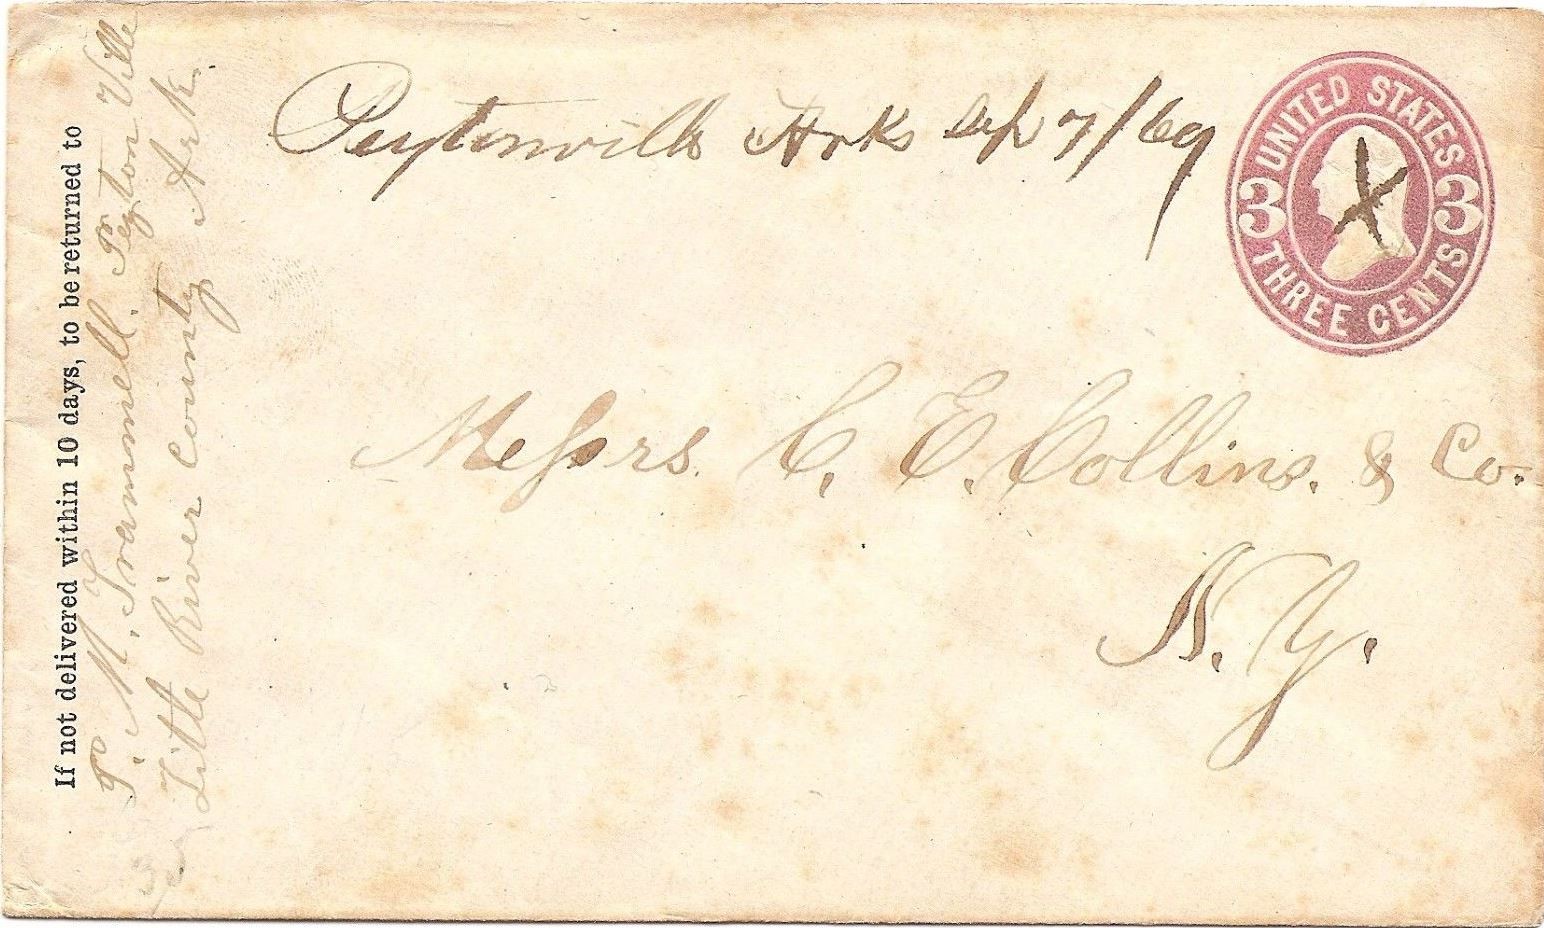 Peytonville Arks Sep 7/69
UNITED STATES
3 3
THREE CENTS
X
Messrs. C. E. Collins. & Co.
N. Y.
If not delivered within 10 days, to be returned to
T. M. Trammell. Peyton Ville
Little River County Ark.